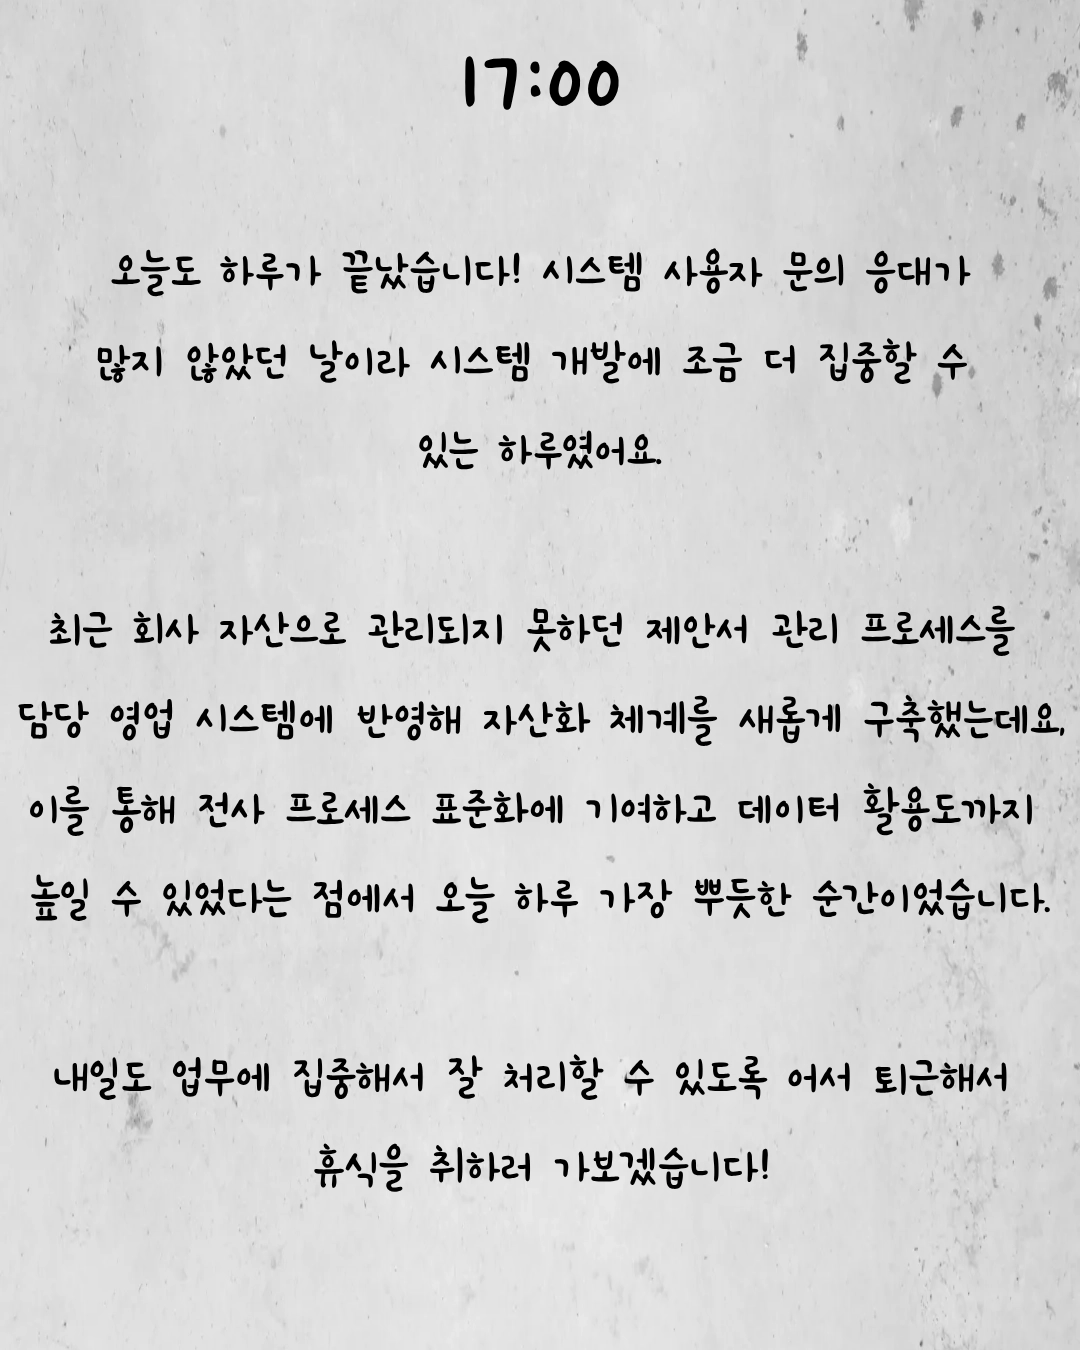 17:00
오늘도 하루가 끝났습니다! 시스템 사용자 문의 응대가
많지 않았던 날이라 시스템 개발에 조금 더 집중할 수
있는 하루였어요.
최근 회사 자산으로 관리되지 못하던 제안서 관리 프로세스를
담당 영업 시스템에 반영해 자산화 체계를 새롭게 구축했는데요,
이를 통해 전사 프로세스 표준화에 기여하고 데이터 활용도까지
높일 수 있었다는 점에서 오늘 하루 가장 뿌듯한 순간이었습니다.
내일도 업무에 집중해서 잘 처리할 수 있도록 어서 퇴근해서
휴식을 취하러 가보겠습니다!